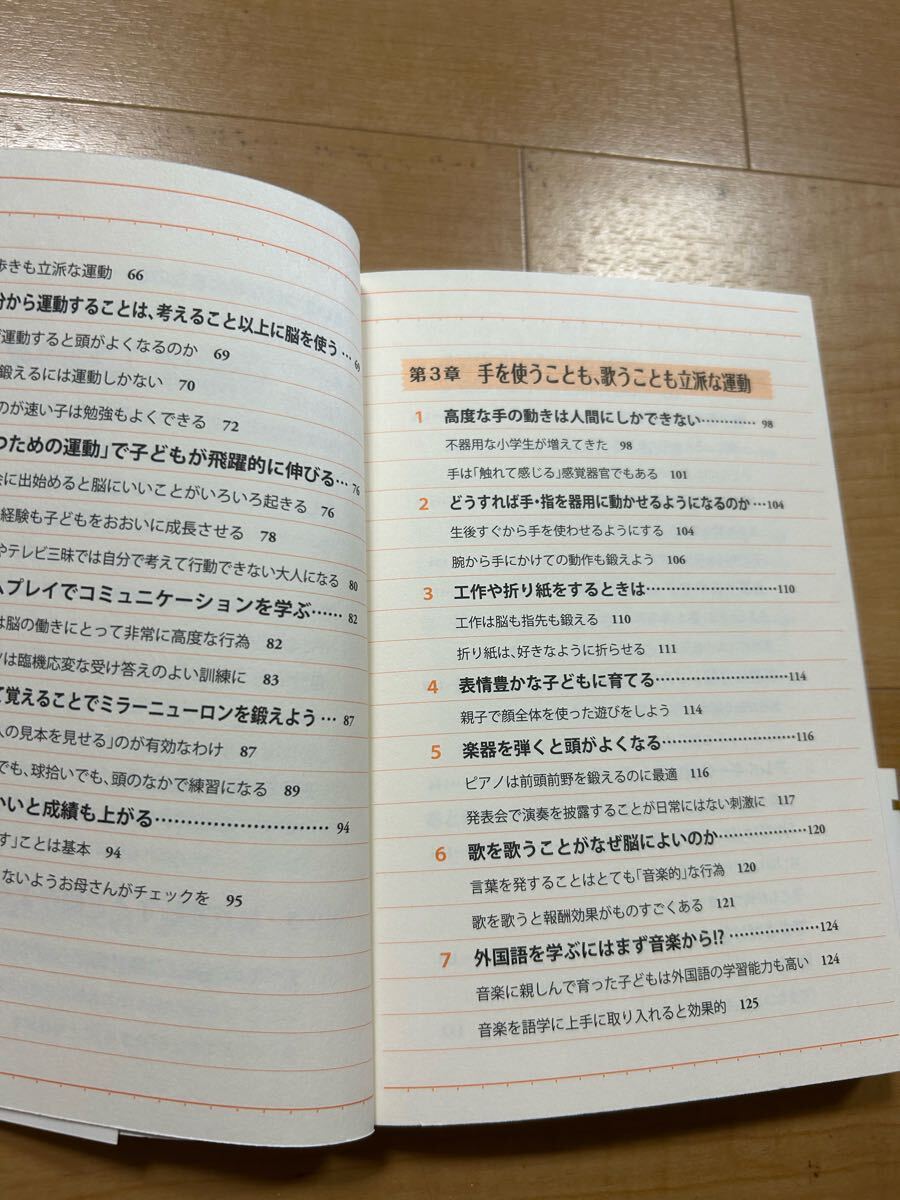 歩きも立派な運動 66
分から運動することは、考えること以上に脳を使う … 69
運動すると頭がよくなるのか 69
鍛えるには運動しかない 70
のが速い子は勉強もよくできる 72
つための運動」で子どもが飛躍的に伸びる … 76
に出始めると脳にいいことがいろいろ起きる 76
経験も子どもをおおいに成長させる 78
やテレビ三昧では自分で考えて行動できない大人になる 80
ムプレイでコミュニケーションを学ぶ …… 82
は脳の働きにとって非常に高度な行為 82
ツは臨機応変な受け答えのよい訓練に 83
て覚えることでミラーニューロンを鍛えよう … 87
人の見本を見せる」のが有効なわけ 87
でも、球拾いでも、頭のなかで練習になる 89
かいと成績も上がる ………………………… 94
す」ことは基本 94
ないようお母さんがチェックを 95
第3章 手を使うことも、歌うことも立派な運動
1 高度な手の動きは人間にしかできない ………… 98
不器用な小学生が増えてきた 98
手は「触れて感じる」感覚器官でもある 101
2 どうすれば手・指を器用に動かせるようになるのか … 104
生後すぐから手を使わせるようにする 104
腕から手にかけての動作も鍛えよう 106
3 工作や折り紙をするときは ……………………… 110
工作は脳も指先も鍛える 110
折り紙は、好きなように折らせる 111
4 表情豊かな子どもに育てる ……………………… 114
親子で顔全体を使った遊びをしよう 114
5 楽器を弾くと頭がよくなる ……………………… 116
ピアノは前頭前野を鍛えるのに最適 116
発表会で演奏を披露することが日常にはない刺激に 117
6 歌を歌うことがなぜ脳によいのか ……………… 120
言葉を発することはとても「音楽的」な行為 120
歌を歌うと報酬効果がものすごくある 121
7 外国語を学ぶにはまず音楽から!? ……………… 124
音楽に親しんで育った子どもは外国語の学習能力も高い 124
音楽を語学に上手に取り入れると効果的 125